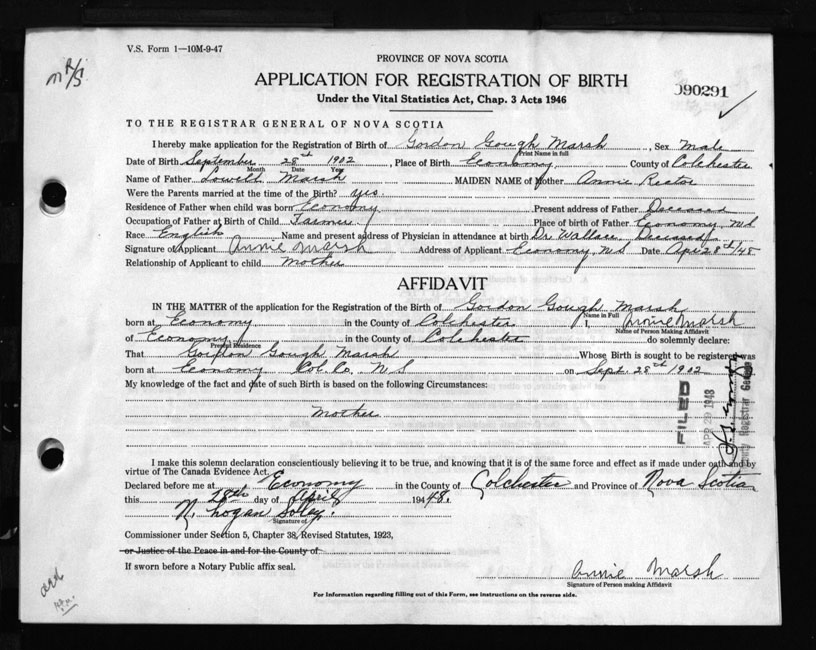 V.S. Form 1—10M-9-47
PROVINCE OF NOVA SCOTIA
APPLICATION FOR REGISTRATION OF BIRTH
090291
Under the Vital Statistics Act, Chap. 3 Acts 1946
TO THE REGISTRAR GENERAL OF NOVA SCOTIA
I hereby make application for the Registration of Birth of Gordon Gough Marsh, Sex Male
Print Name in full
Date of Birth September 28th 1902, Place of Birth Economy County of Colchester
Month Date Year
Name of Father Lowell Marsh MAIDEN NAME of Mother Annie Rector
Were the Parents married at the time of the Birth? yes.
Residence of Father when child was born Economy Present address of Father Deceased
Occupation of Father at Birth of Child Farmer Place of birth of Father Economy, NS
Race English Name and present address of Physician in attendance at birth Dr Wallace, Deceased
Signature of Applicant Annie Marsh Address of Applicant Economy, NS Date Apr 28th/48
Relationship of Applicant to child Mother
AFFIDAVIT
IN THE MATTER of the application for the Registration of the Birth of Gordon Gough Marsh
Name in Full
born at Economy in the County of Colchester I, Annie Marsh
Name of Person Making Affidavit
of Economy in the County of Colchester do solemnly declare:
Present Residence
That Gordon Gough Marsh Whose Birth is sought to be registered was
born at Economy Col. Co. N S on Sept. 28th 1902
My knowledge of the fact and date of such Birth is based on the following Circumstances:
Mother
FILED
APR 29 1948
Deputy Registrar General
I make this solemn declaration conscientiously believing it to be true, and knowing that it is of the same force and effect as if made under oath and by
virtue of The Canada Evidence Act.
Declared before me at Economy in the County of Colchester and Province of Nova Scotia
this 28th day of April 194 48.
N. Logan Soley.
Signature of
Commissioner under Section 5, Chapter 38, Revised Statutes, 1923,
or Justice of the Peace in and for the County of
If sworn before a Notary Public affix seal.
Annie Marsh
Signature of Person making Affidavit
For Information regarding filling out of this Form, see instructions on the reverse side.